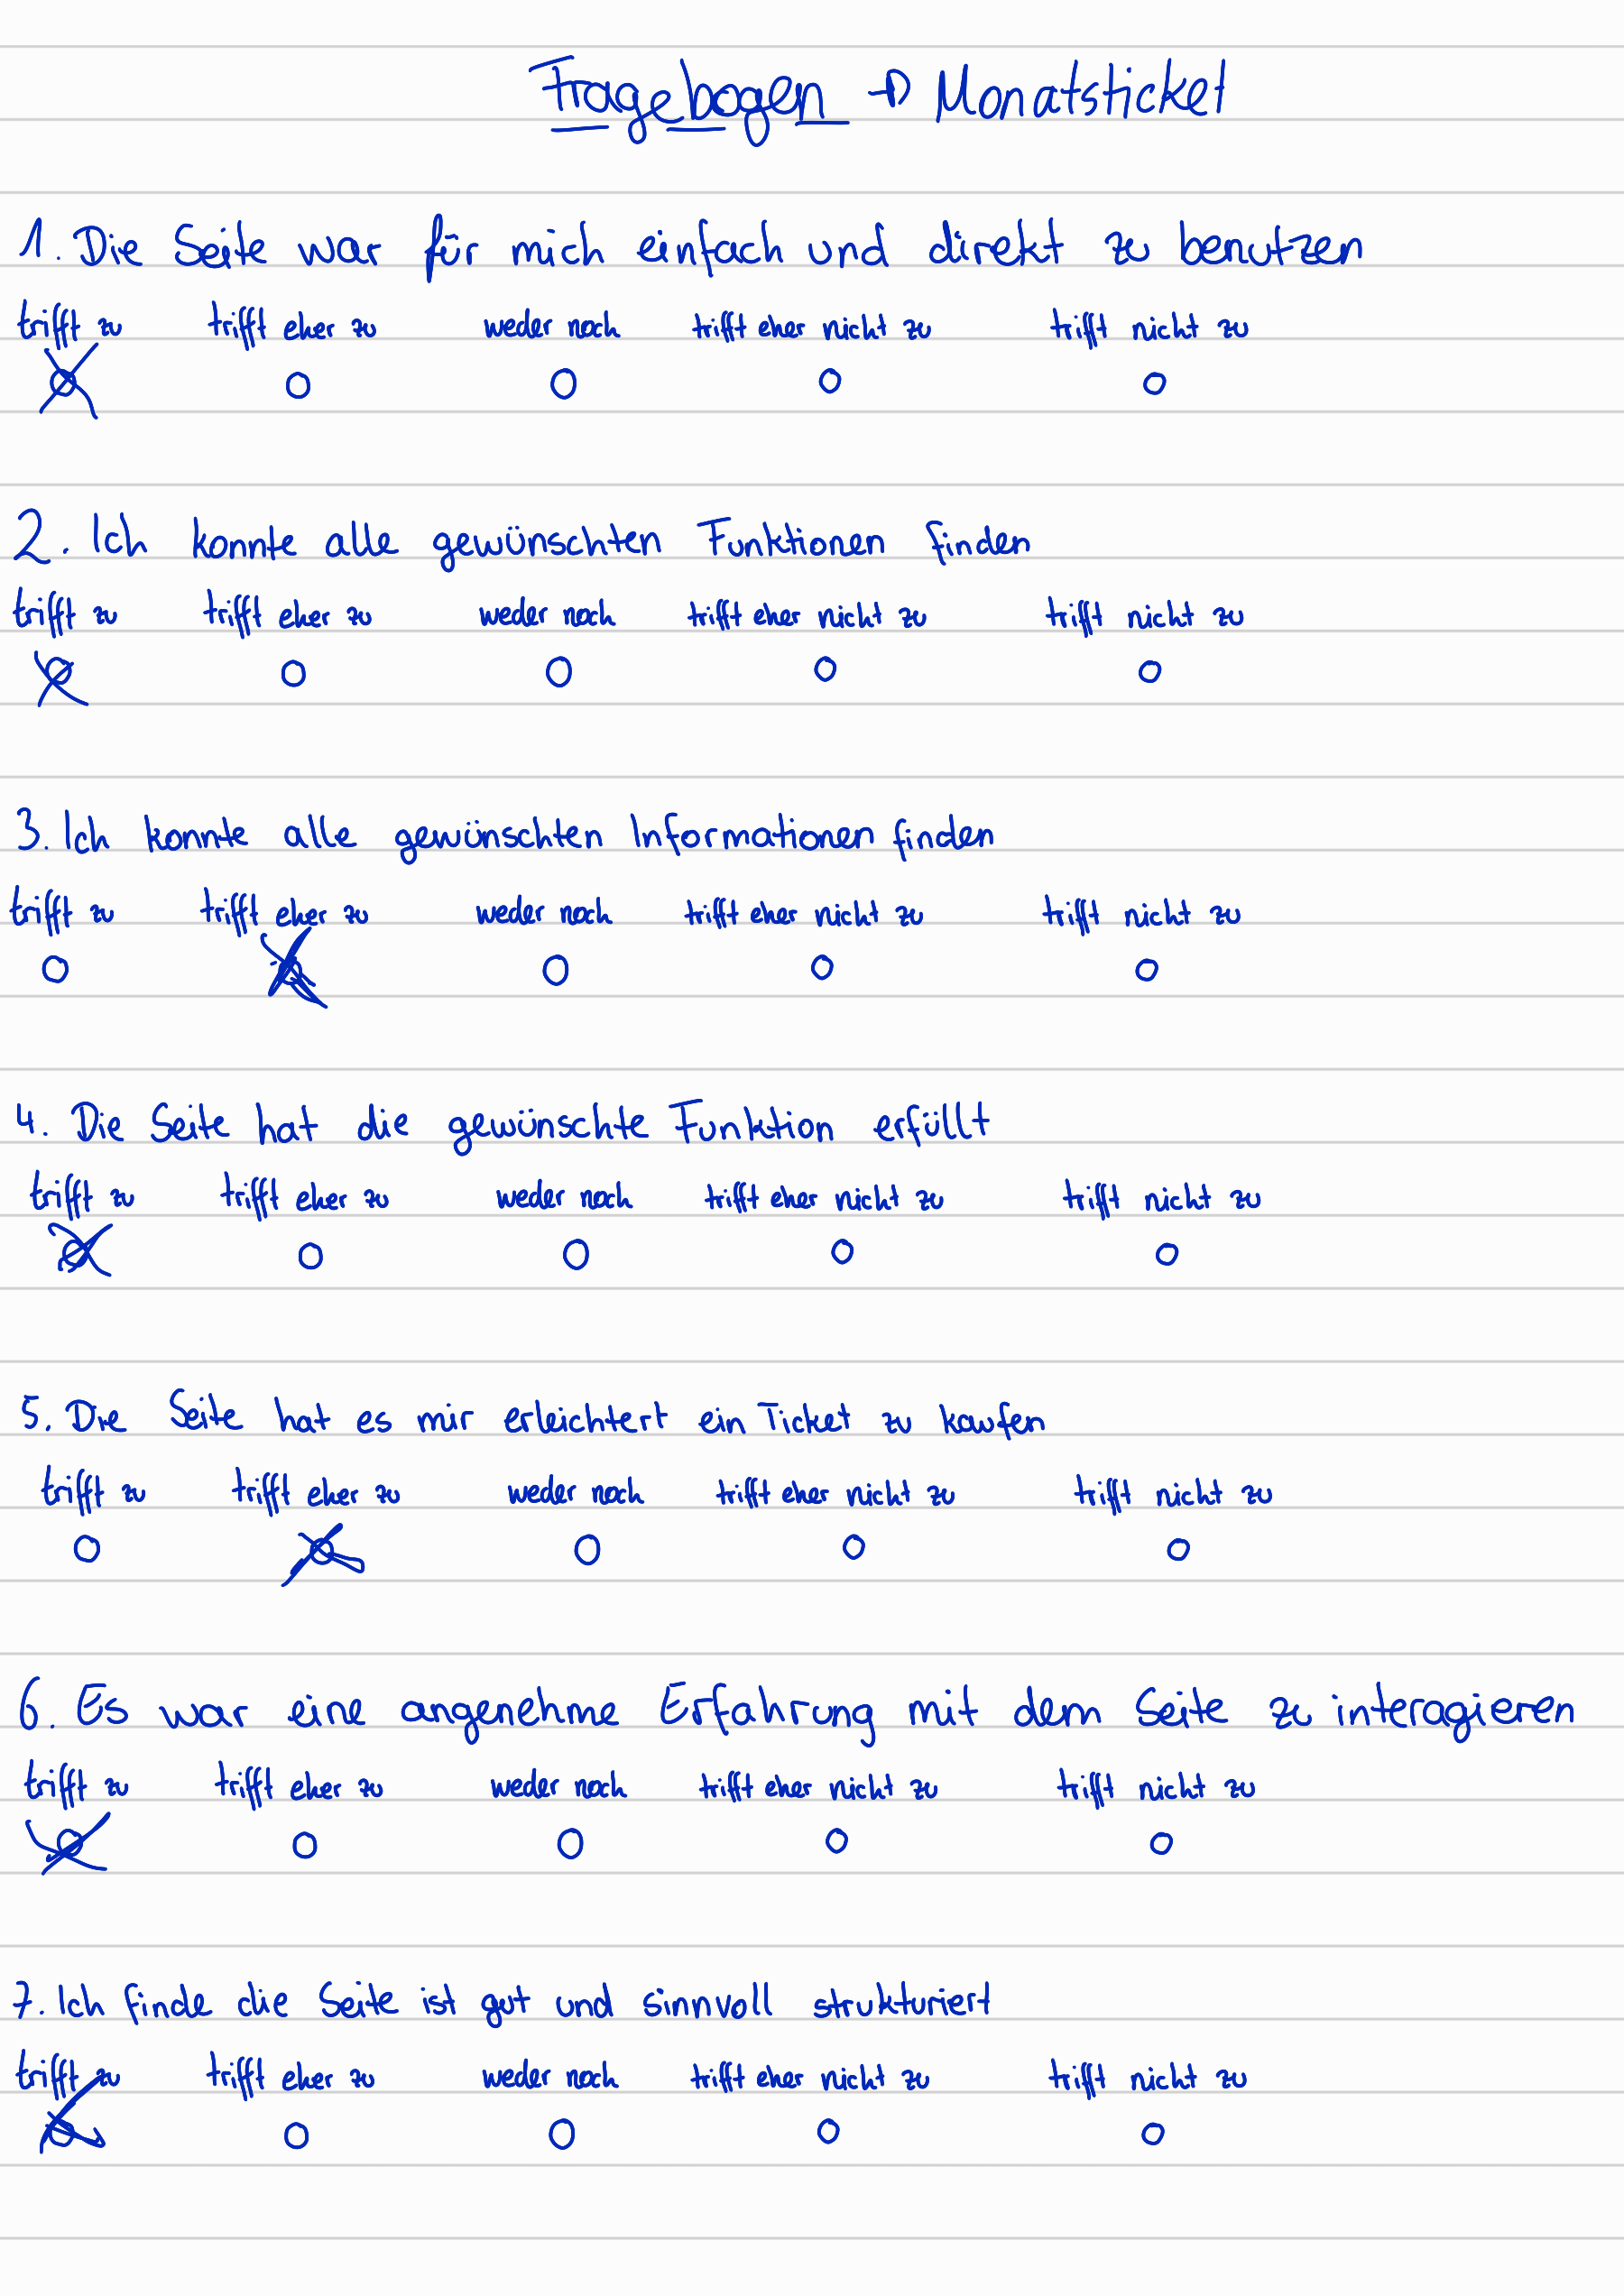 Fragebogen → Monatsticket
1. Die Seite war für mich einfach und direkt zu benutzen
trifft zu trifft eher zu weder noch trifft eher nicht zu trifft nicht zu
2. Ich konnte alle gewünschten Funktionen finden
trifft zu trifft eher zu weder noch trifft eher nicht zu trifft nicht zu
3. Ich konnte alle gewünschten Informationen finden
trifft zu trifft eher zu weder noch trifft eher nicht zu trifft nicht zu
4. Die Seite hat die gewünschte Funktion erfüllt
trifft zu trifft eher zu weder noch trifft eher nicht zu trifft nicht zu
5. Die Seite hat es mir erleichtert ein Ticket zu kaufen
trifft zu trifft eher zu weder noch trifft eher nicht zu trifft nicht zu
6. Es war eine angenehme Erfahrung mit dem Seite zu interagieren
trifft zu trifft eher zu weder noch trifft eher nicht zu trifft nicht zu
7. Ich finde die Seite ist gut und sinnvoll strukturiert
trifft zu trifft eher zu weder noch trifft eher nicht zu trifft nicht zu